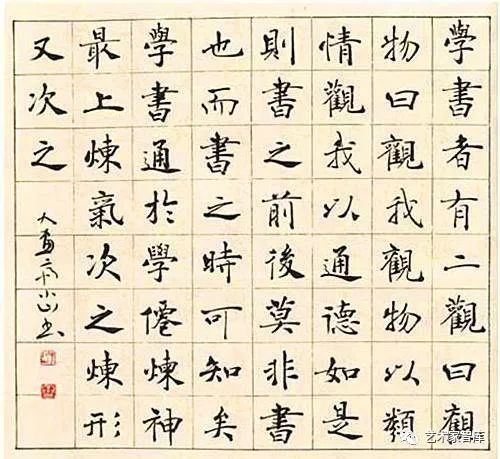 學書者有二觀曰觀
物曰觀我觀物以類
情觀我以通德如是
則書之前後莫非書
也而書之時可知矣
學書通於學僊煉神
最上煉氣次之煉形
又次之
艺术家智库